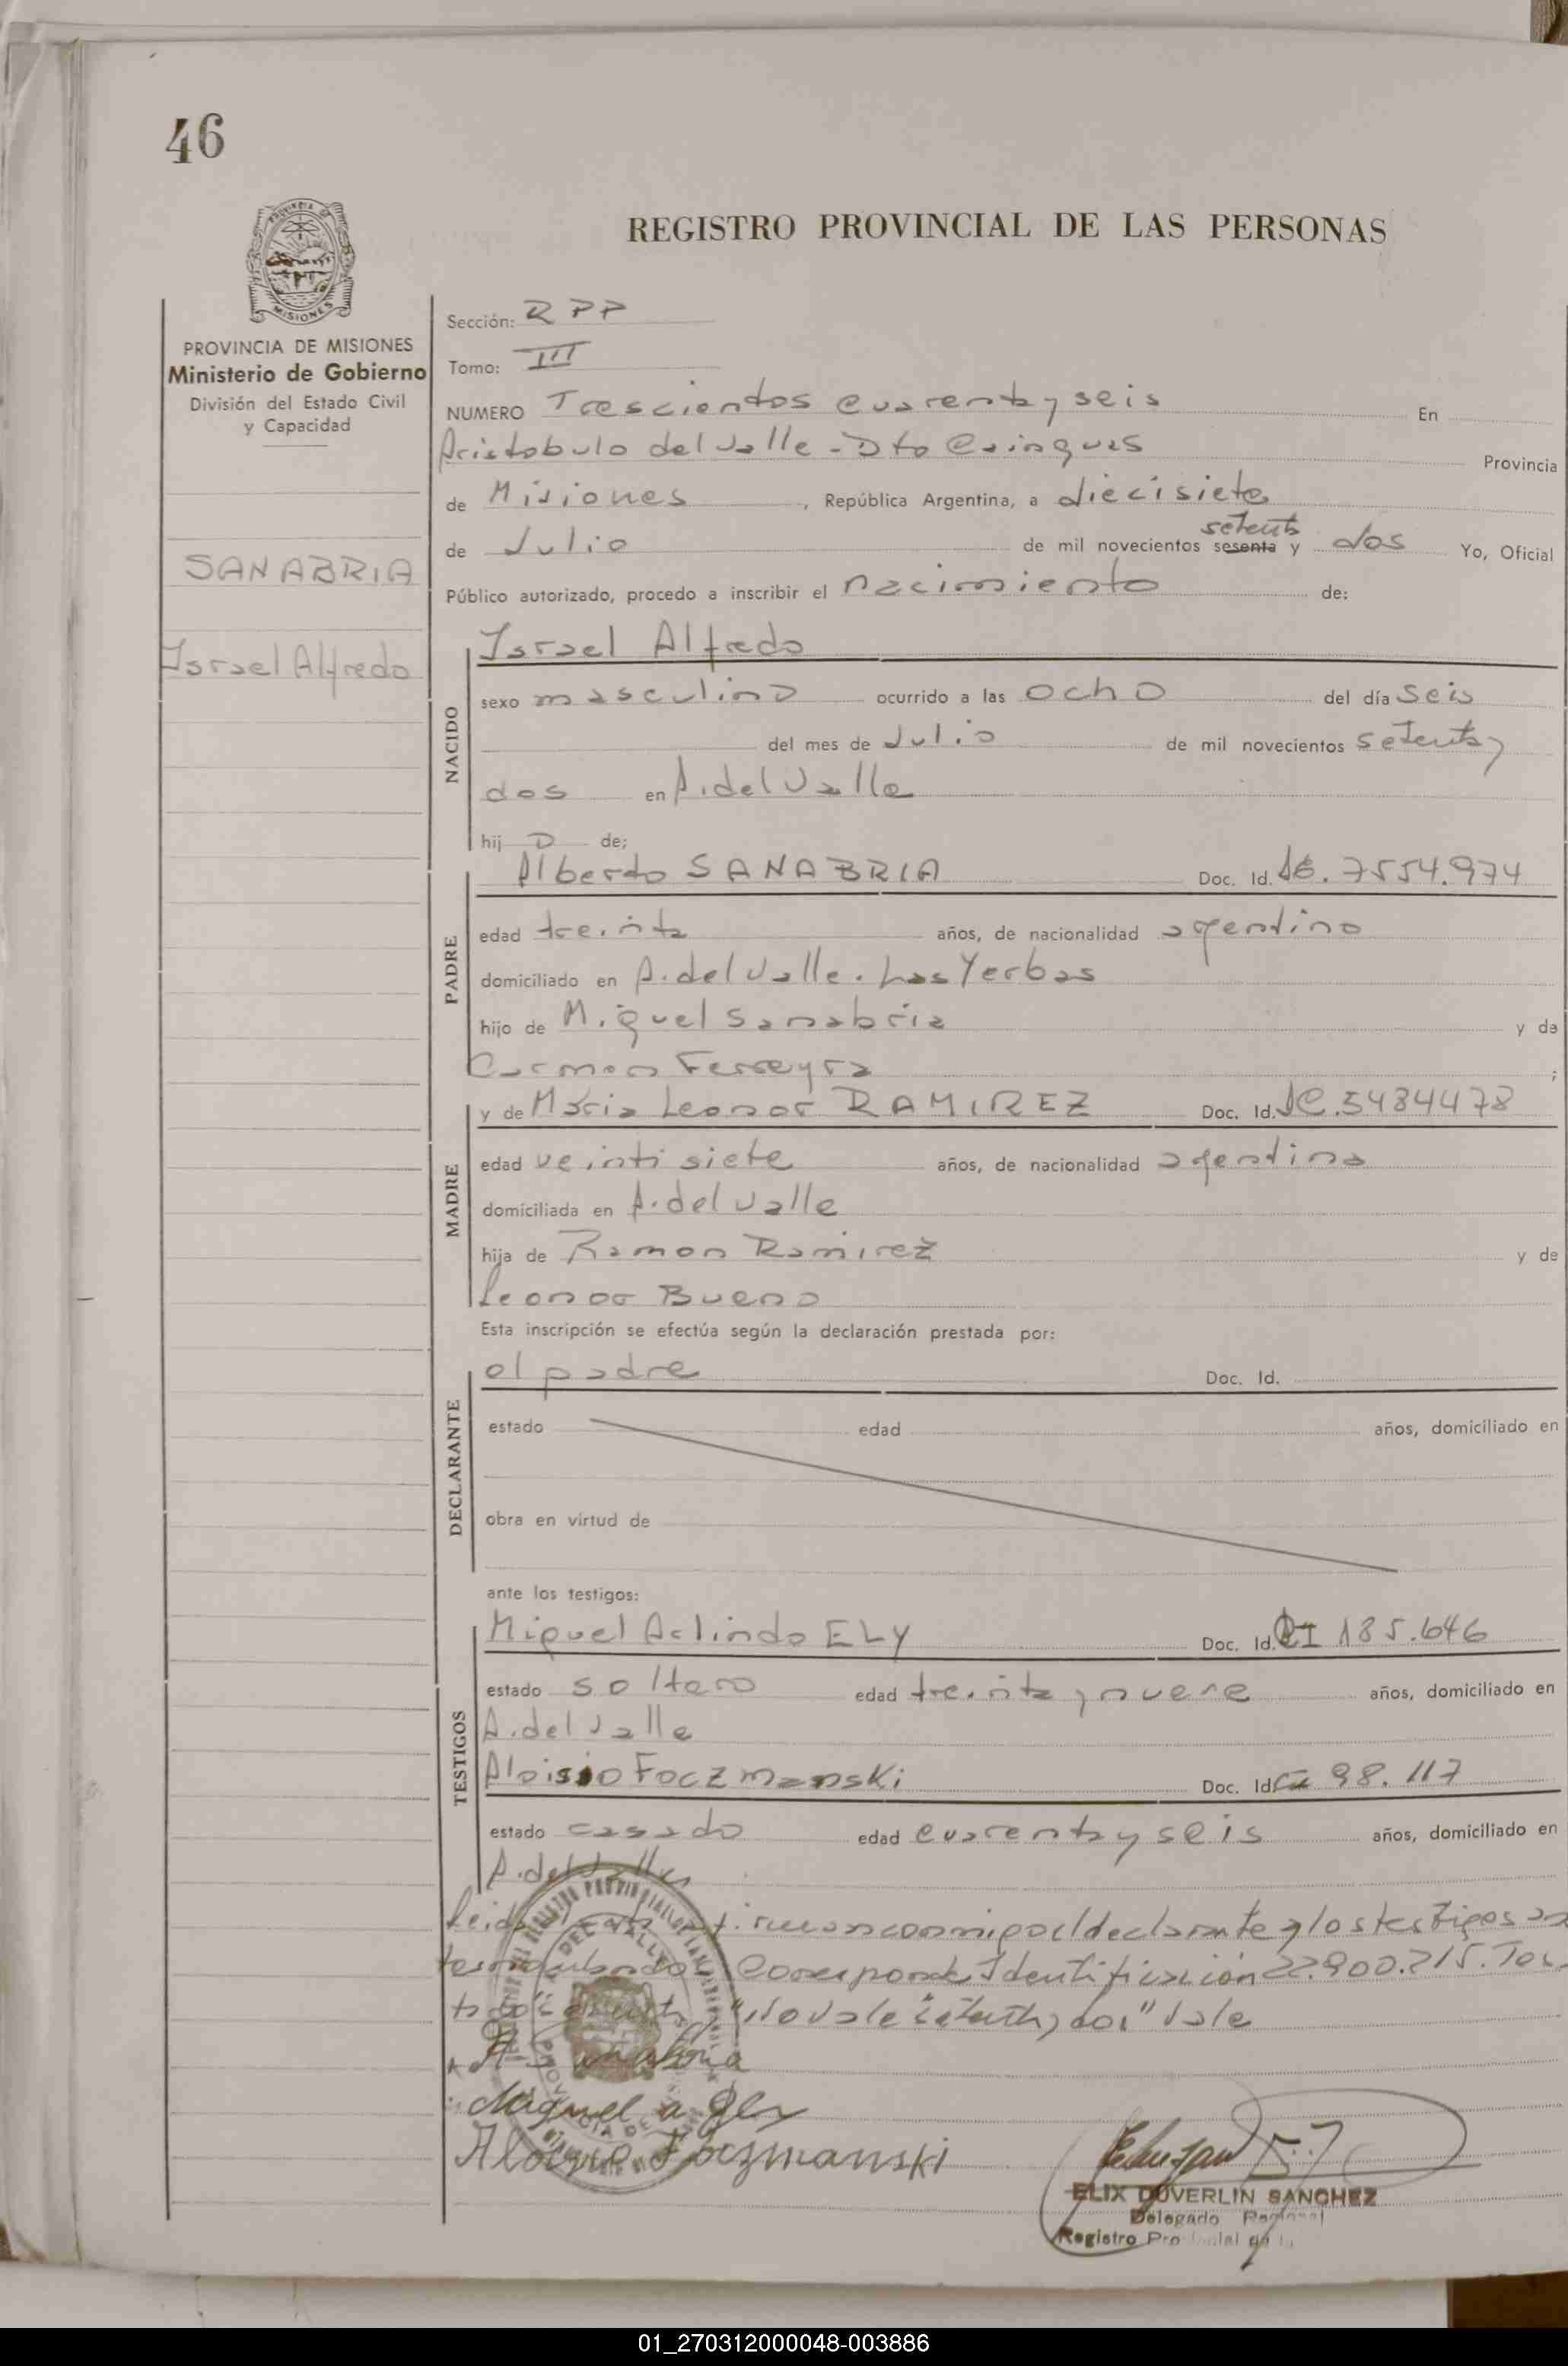 46
REGISTRO PROVINCIAL DE LAS PERSONAS
MISIONES
PROVINCIA DE MISIONES
Ministerio de Gobierno
División del Estado Civil
y Capacidad
SANABRIA
Israel Alfredo
Sección: RPP
Tomo: III
NUMERO Trescientos cuarenta y seis En
Aristobulo del Valle - Dto Cainguas Provincia
de Misiones, República Argentina, a diecisiete
setenta
de Julio de mil novecientos sesenta y dos Yo, Oficial
Público autorizado, procedo a inscribir el nacimiento de:
NACIDO
Israel Alfredo
sexo masculino ocurrido a las ocho del día seis
del mes de Julio de mil novecientos setenta y
dos en A. del Valle
hij o de;
PADRE
Alberto SANABRIA Doc. Id. 7554.974
edad treinta años, de nacionalidad argentino
domiciliado en A. del Valle. Las Yerbas
hijo de Miguel Sanabria y de
Carmen Ferreyra ;
MADRE
y de Maria Leonor RAMIREZ Doc. Id. LC. 5484478
edad veintisiete años, de nacionalidad argentina
domiciliada en A. del Valle
hija de Ramon Ramirez y de
Leonor Bueno
Esta inscripción se efectúa según la declaración prestada por:
DECLARANTE
el padre Doc. Id.
estado edad años, domiciliado en
obra en virtud de
ante los testigos:
TESTIGOS
Miguel Arlindo ELY Doc. Id. CI 185.646
estado soltero edad treinta y nueve años, domiciliado en
A. del Valle
Aloisio Foczmanski Doc. Id. 98.117
estado casado edad cuarenta y seis años, domiciliado en
A. del Valle
Leida firman conmigo el declarante y los testigos
Corresponde Identificación 22.900.215.
"No vale "setenta y dos" Vale
A. Sanabria
Miguel a Ely
Aloisio Foczmanski
ELIX DUVERLIN SANCHEZ
Delegado Regional
Registro Provincial de la
01_270312000048-003886